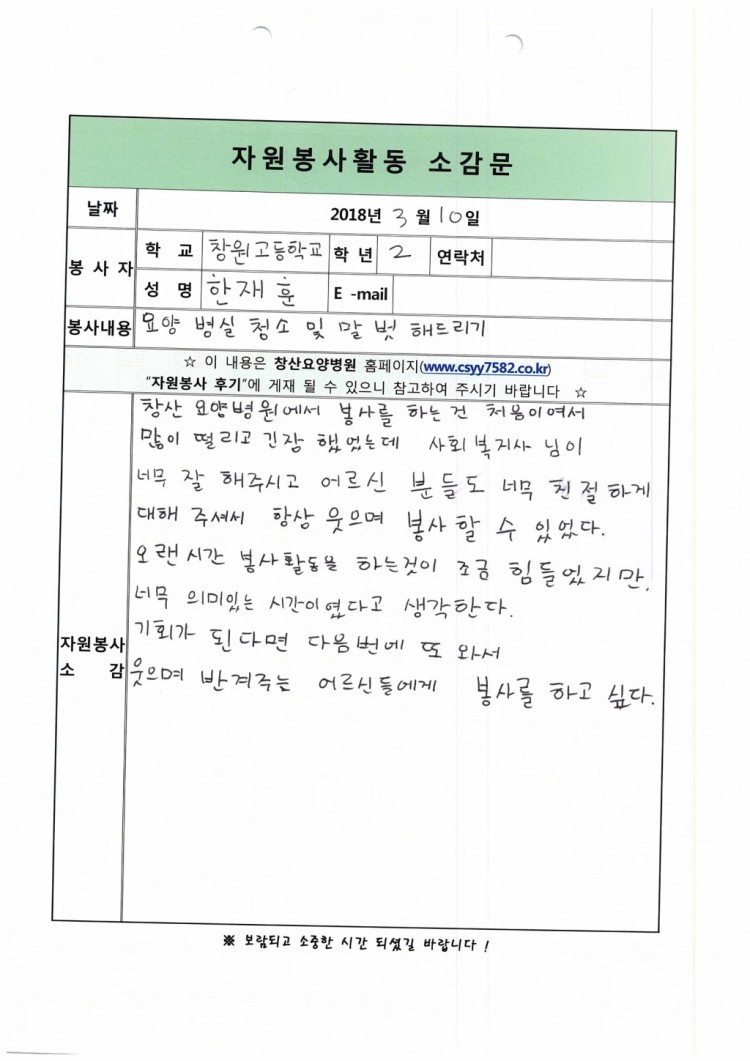 자원봉사활동 소감문
날짜 2018년 3월 10일
봉사자 학교 창원고등학교 학년 2 연락처
성명 한재훈 E-mail
봉사내용 요양 병실 청소 및 말벗 해드리기
☆ 이 내용은 창산요양병원 홈페이지(www.csyy7582.co.kr)
"자원봉사 후기"에 게재 될 수 있으니 참고하여 주시기 바랍니다 ☆
자원봉사
소감
창산 요양병원에서 봉사를 하는 건 처음이여서
많이 떨리고 긴장 했었는데 사회복지사 님이
너무 잘 해주시고 어르신 분들도 너무 친절하게
대해 주셔서 항상 웃으며 봉사 할 수 있었다.
오랜시간 봉사활동을 하는것이 조금 힘들었지만,
너무 의미있는 시간이였다고 생각한다.
기회가 된다면 다음번에 또 와서
웃으며 반겨주는 어르신들에게 봉사를 하고 싶다.
※ 보람되고 소중한 시간 되셨길 바랍니다 !